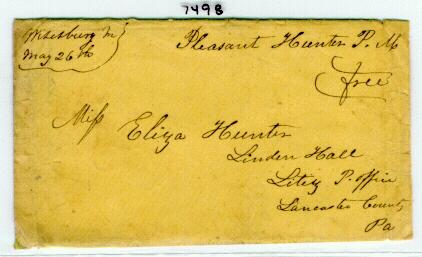 7498
Wisesburg M
May 26th
Pleasant Hunter P. M
free
Miss
Eliza Hunter
Linden Hall
Litez P. Office
Lancaster County
Pa